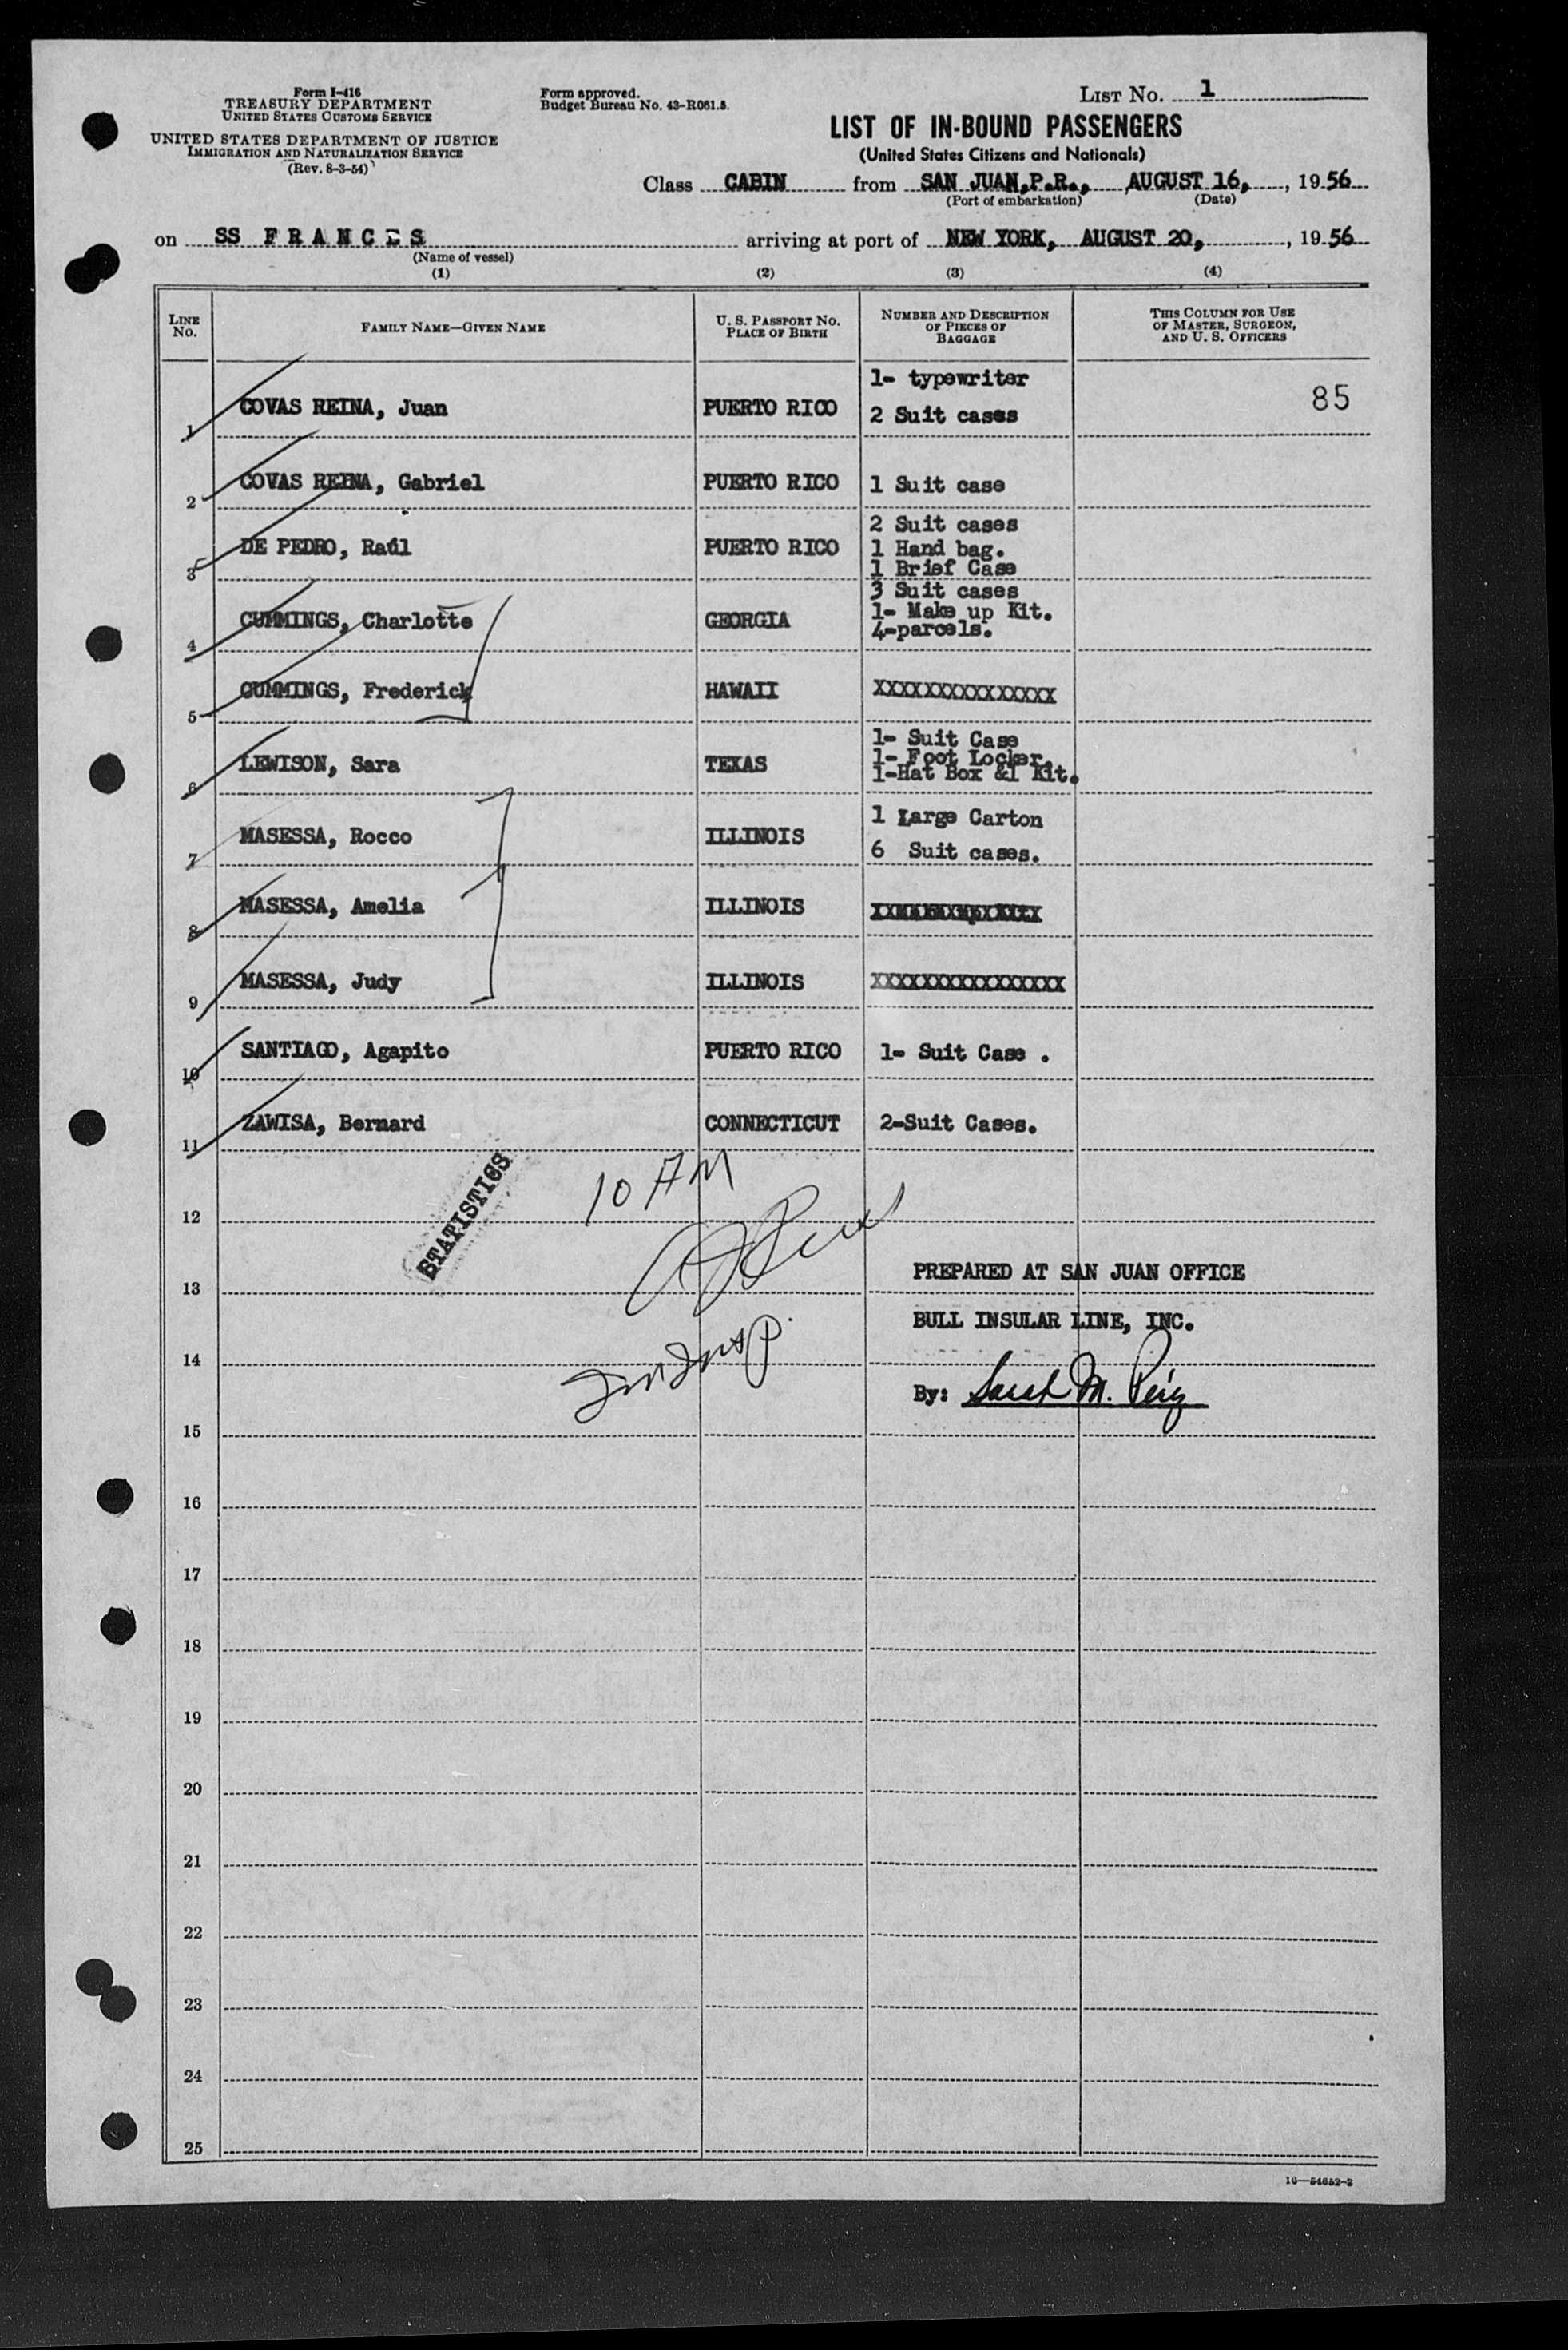 Form I-416
TREASURY DEPARTMENT
UNITED STATES CUSTOMS SERVICE
UNITED STATES DEPARTMENT OF JUSTICE
IMMIGRATION AND NATURALIZATION SERVICE
(Rev. 8-3-54)
Form approved.
Budget Bureau No. 43-R061.5.
LIST NO. 1
LIST OF IN-BOUND PASSENGERS
(United States Citizens and Nationals)
Class CABIN from SAN JUAN,P.R., AUGUST 16, , 19 56
(Port of embarkation) (Date)
on SS FRANCES arriving at port of NEW YORK, AUGUST 20, , 19 56
(Name of vessel)
(1) (2) (3) (4)
LINE NO.
FAMILY NAME—GIVEN NAME
U. S. PASSPORT NO.
PLACE OF BIRTH
NUMBER AND DESCRIPTION
OF PIECES OF
BAGGAGE
THIS COLUMN FOR USE
OF MASTER, SURGEON,
AND U. S. OFFICERS
1- typewriter
1 COVAS REINA, Juan PUERTO RICO 2 Suit cases 85
2 COVAS REINA, Gabriel PUERTO RICO 1 Suit case
2 Suit cases
3 DE PEDRO, Raúl PUERTO RICO 1 Hand bag.
1 Brief Case
3 Suit cases
4 CUMMINGS, Charlotte GEORGIA 1- Make up Kit.
4-parcels.
5 CUMMINGS, Frederick HAWAII XXXXXXXXXXXXXXX
1- Suit Case
6 LEWISON, Sara TEXAS 1- Foot Locker.
1-Hat Box &1 Kit.
1 Large Carton
7 MASESSA, Rocco ILLINOIS 6 Suit cases.
8 MASESSA, Amelia ILLINOIS
9 MASESSA, Judy ILLINOIS XXXXXXXXXXXXXXXX
10 SANTIAGO, Agapito PUERTO RICO 1- Suit Case .
11 ZAWISA, Bernard CONNECTICUT 2-Suit Cases.
STATISTICS
10 AM
12
PREPARED AT SAN JUAN OFFICE
13
BULL INSULAR LINE, INC.
14
By: Sarah M.
15
16
17
18
19
20
21
22
23
24
25
16—54652-2